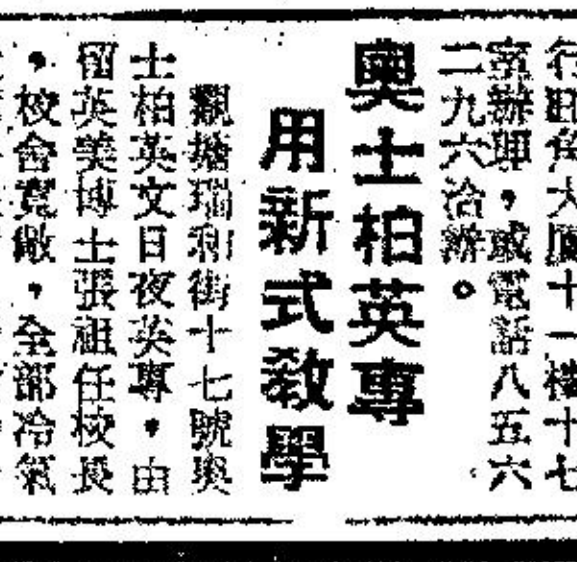 行旺角大厦十一樓十七
室辦理，或電話八五六
二九六洽辦。
奧士柏英專
用新式敎學
觀塘瑞和街十七號奧
士柏英文日夜英專，由
留英美博士張祖任校長
，校舍寬敞，全部冷氣